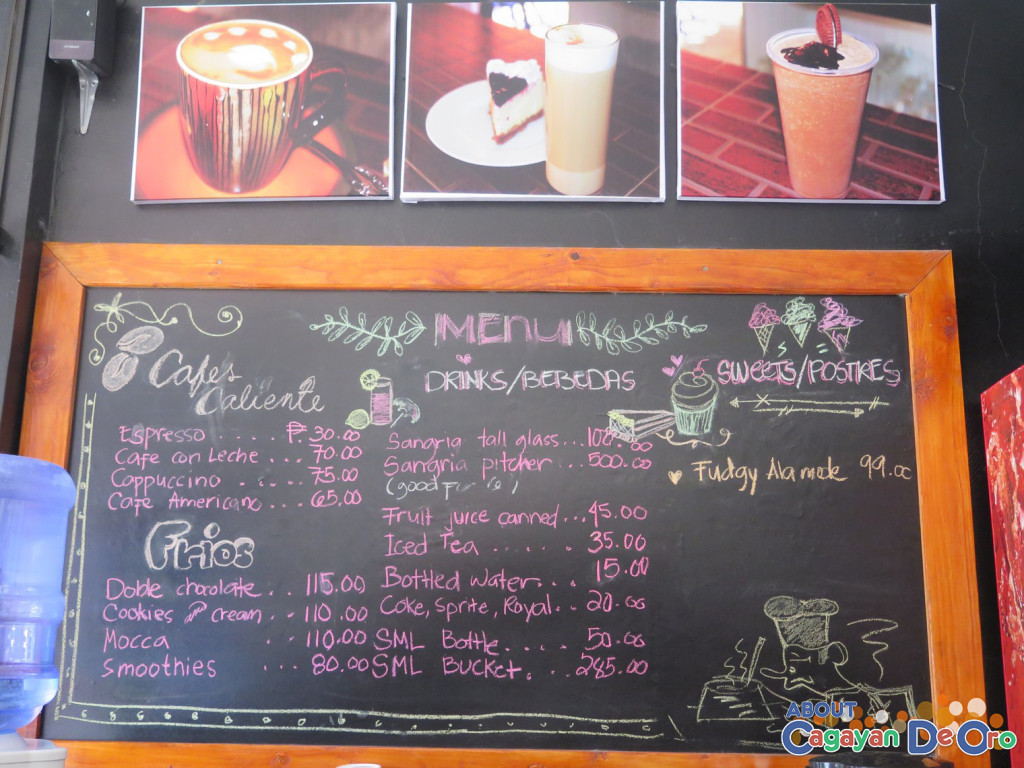 MENU
Cafes
Caliente
Espresso .... ₱. 30.00
Cafe con Leche ... 70.00
Cappuccino ..... 75.00
Cafe Americano ... 65.00
Frios
Doble chocolate .. 115.00
Cookies & cream .. 110.00
Mocca .. 110.00
Smoothies ... 80.00
DRINKS/BEBEDAS
Sangria tall glass... 100.00
Sangria pitcher ... 500.00
(good
Fruit juice canned... 45.00
Iced Tea ...... 35.00
Bottled Water... 15.00
Coke, Sprite, Royal.. 20.00
SML Bottle.... 50.00
SML BUCKET. ... 285.00
SWEETS/POSTRES
Fudgy Ala mode 99.00
ABOUT
Cagayan De Oro